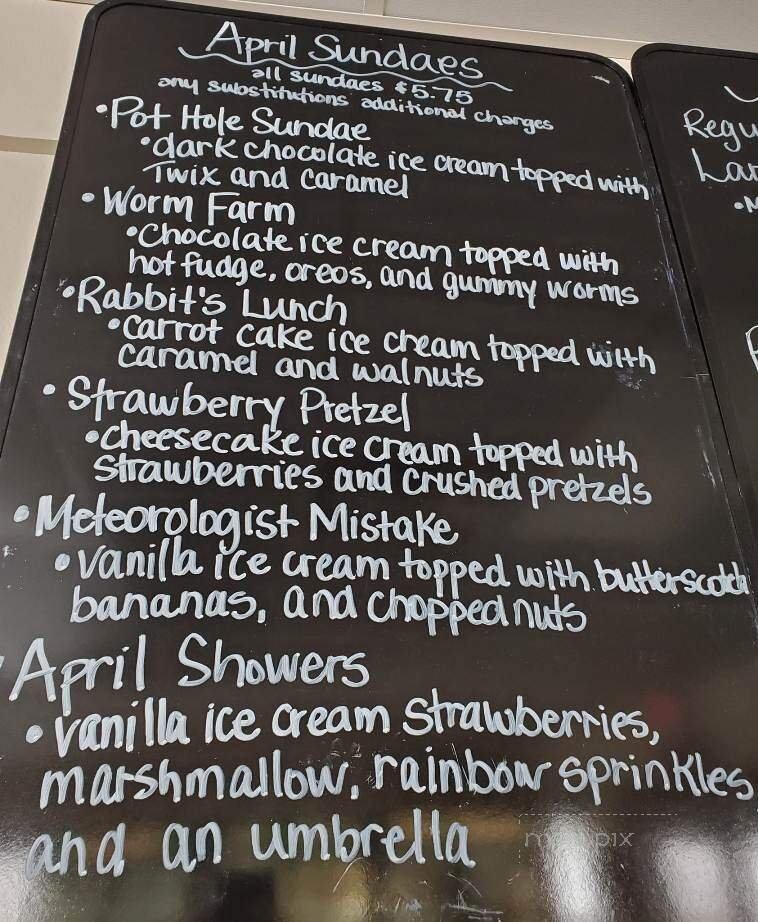 April Sundaes
all sundaes $5.75
any substitutions additional charges
•Pot Hole Sundae
•dark chocolate ice cream topped with
Twix and caramel
•Worm Farm
•Chocolate ice cream topped with
hot fudge, oreos, and gummy worms
•Rabbit's Lunch
•carrot cake ice cream topped with
caramel and walnuts
•Strawberry Pretzel
•cheesecake ice cream topped with
strawberries and crushed pretzels
•Meteorologist Mistake
•vanilla ice cream topped with butterscotch
bananas, and chopped nuts
April Showers
•vanilla ice cream strawberries,
marshmallow, rainbow sprinkles
and an umbrella
Regu